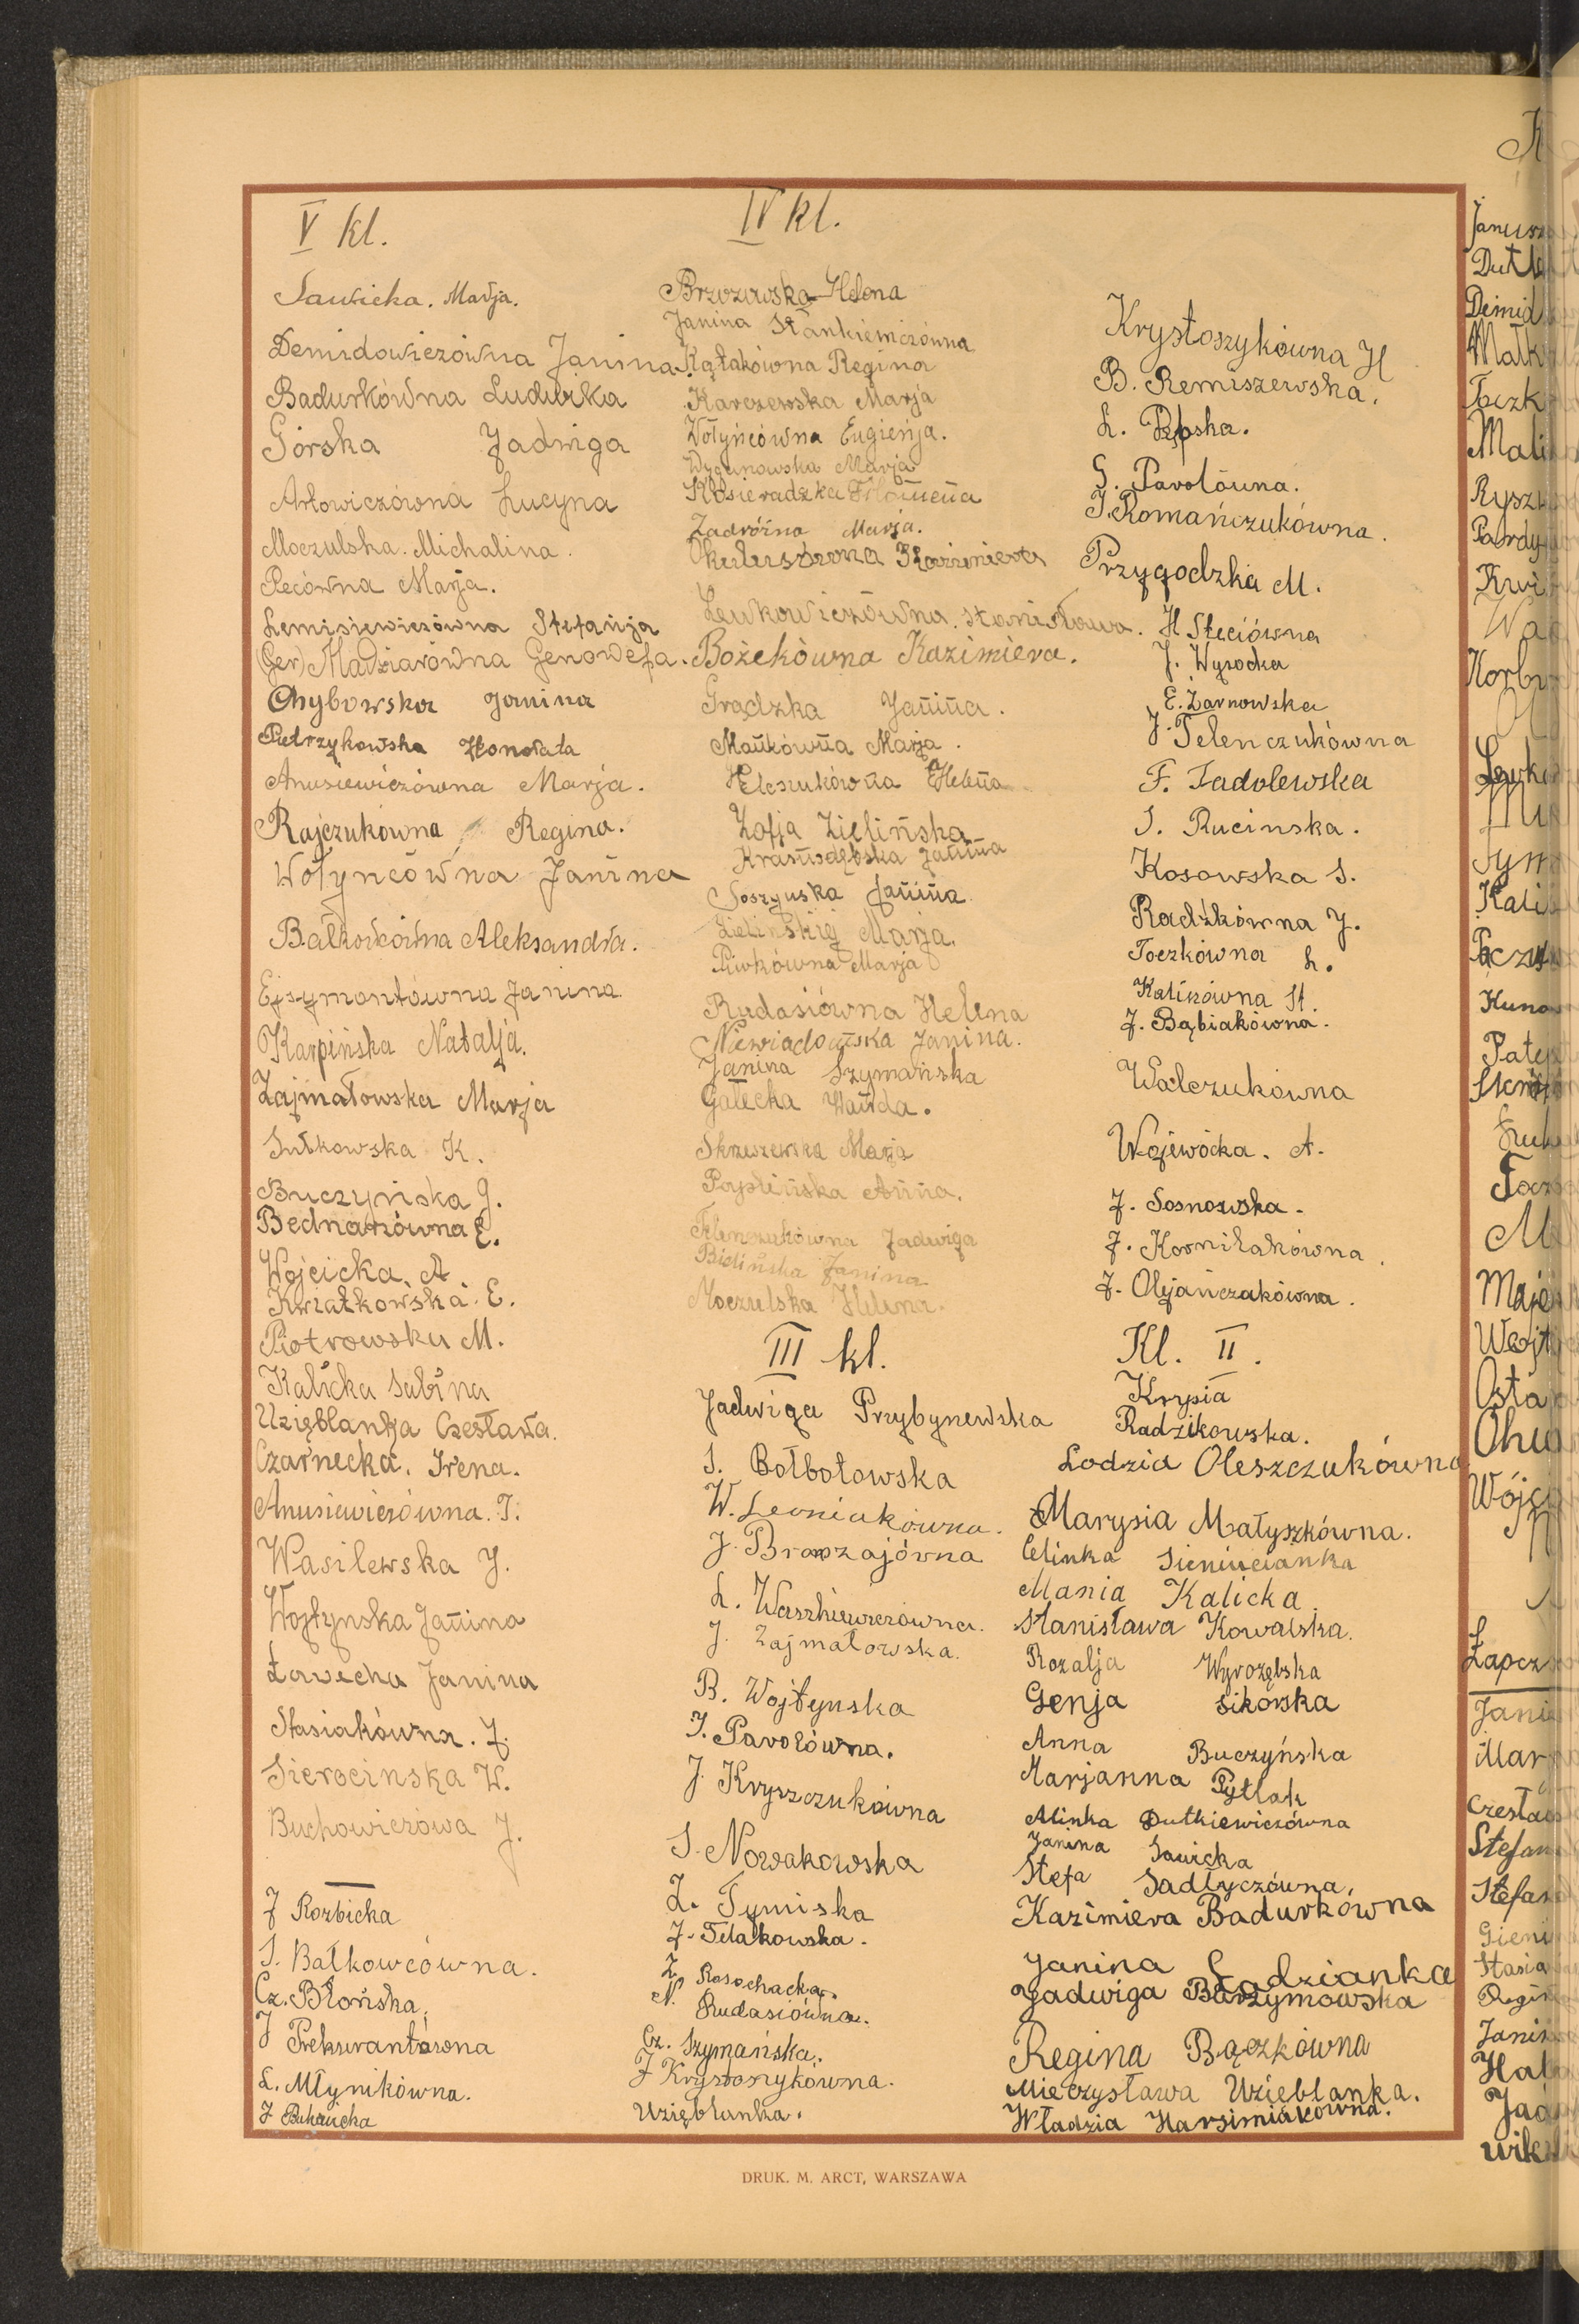 V kl.
Sawicka. Marja.
Demidowiczówna Janina.
Badurkówna Ludwika
Górska Jadwiga
Arłowiczówna Lucyna
Moczulska. Michalina.
Pecówna Marja.
Lemisiewiczówna Stefanja
(Ger) Madziarówna Genowefa.
Chybowska Janina
Pietrzykowska Honorata
Anusiewiczówna Marja.
Rajczukówna Regina.
Wołyncówna Janina
Bałkowcówna Aleksandra.
Ejsymontówna Janina.
Karpińska Natalja.
Zajmałowska Marja
Sutkowska K.
Buczyńska J.
Bednarzówna E.
Wojcicka. A.
Kwiatkowska. E.
Piotrowska M.
Kalicka Sabina
Uzięblanka Czesława.
Czarnecka. Irena.
Anusiewiczówna. T.
Wasilewska J.
Wojtynska Janina
Ławecka Janina
Stasiakówna. J.
Sierocinska W.
Buchowiczówa J.
J Rozbicka
S. Bałkowcówna.
Cz. Błońska.
J
L. Młynikówna.
J
IV kl.
Brzozowska Helena
Janina Stankiewiczówna
Kątakówna Regina
Karczewska Marja
Wołyńcówna Eugienja.
Wyganowska Marja
Kosieradzka Filomena
Zadróżna Marja.
Kazimiera
Lewkowiczówna. Stanisława.
Bożekówna Kazimiera.
Grądzka Janina.
Mańkówna Marja.
Helena
Zofja Zielińska
Krasnodębska Janina
Soszyńska Janina
Marja.
Piwkówna Marja
Rudasiówna Helena
Niewiadomska Janina.
Janina Szymańska
Gałecka Wanda.
Skruszewska Marja
Anna.
Telenczukówna Jadwiga
Bielińska Janina
Moczulska Helena.
III kl.
Jadwiga Przybynewska
S. Bołbotowska
W. Leoniakówna.
J.
L. Waszkiewiczówna.
J. Zajmałowska.
B. Wojtynska
I. Pavolówna.
J. Kryszczukówna
S. Nowakowska
Z. Tymiska
J. Telakowska.
Z. Rosochacka.
N. Rudasiówna.
Cz. Szymańska.
J Krystoszykówna.
Uziębłanka.
Krystoszykówna H
B. Remiszewska.
L. Rpska.
G. Pavolówna.
J. Romańczukówna.
Przygodzka M.
H Steciówna
J. Wysocka
E. Żarnowska
J. Telenczukówna
F. Tadolewska
S. Rucinska.
Kosowska S.
Radźkówna J.
Toczkówna L.
Kalinówna St.
J. Bąbiakówna.
Walczukówna
Wojewócka. A.
J. Sosnowska.
J. Korniłakówna.
J. Olejańczakówna.
Kl. II.
Krysia
Radzikowska.
Lodzia Oleszczukówna
Marysia Małyszkówna.
Celinka Sieniucianka
Mania Kalicka.
Stanisława Kowalska.
Rozalja Wyrozębska
Genja Sikorska
Anna Buczyńska
Marjanna Pytlak
Alinka Dutkiewiczówna
Janina Sawicka
Stefa Sadłyczówna.
Kazimiera Badurkówna
Janina Ładzianka
Jadwiga Burzymowska
Regina Bączkówna
Mieczysława Uzięblanka.
Władzia Harsimiakówna.
DRUK. M. ARCT, WARSZAWA